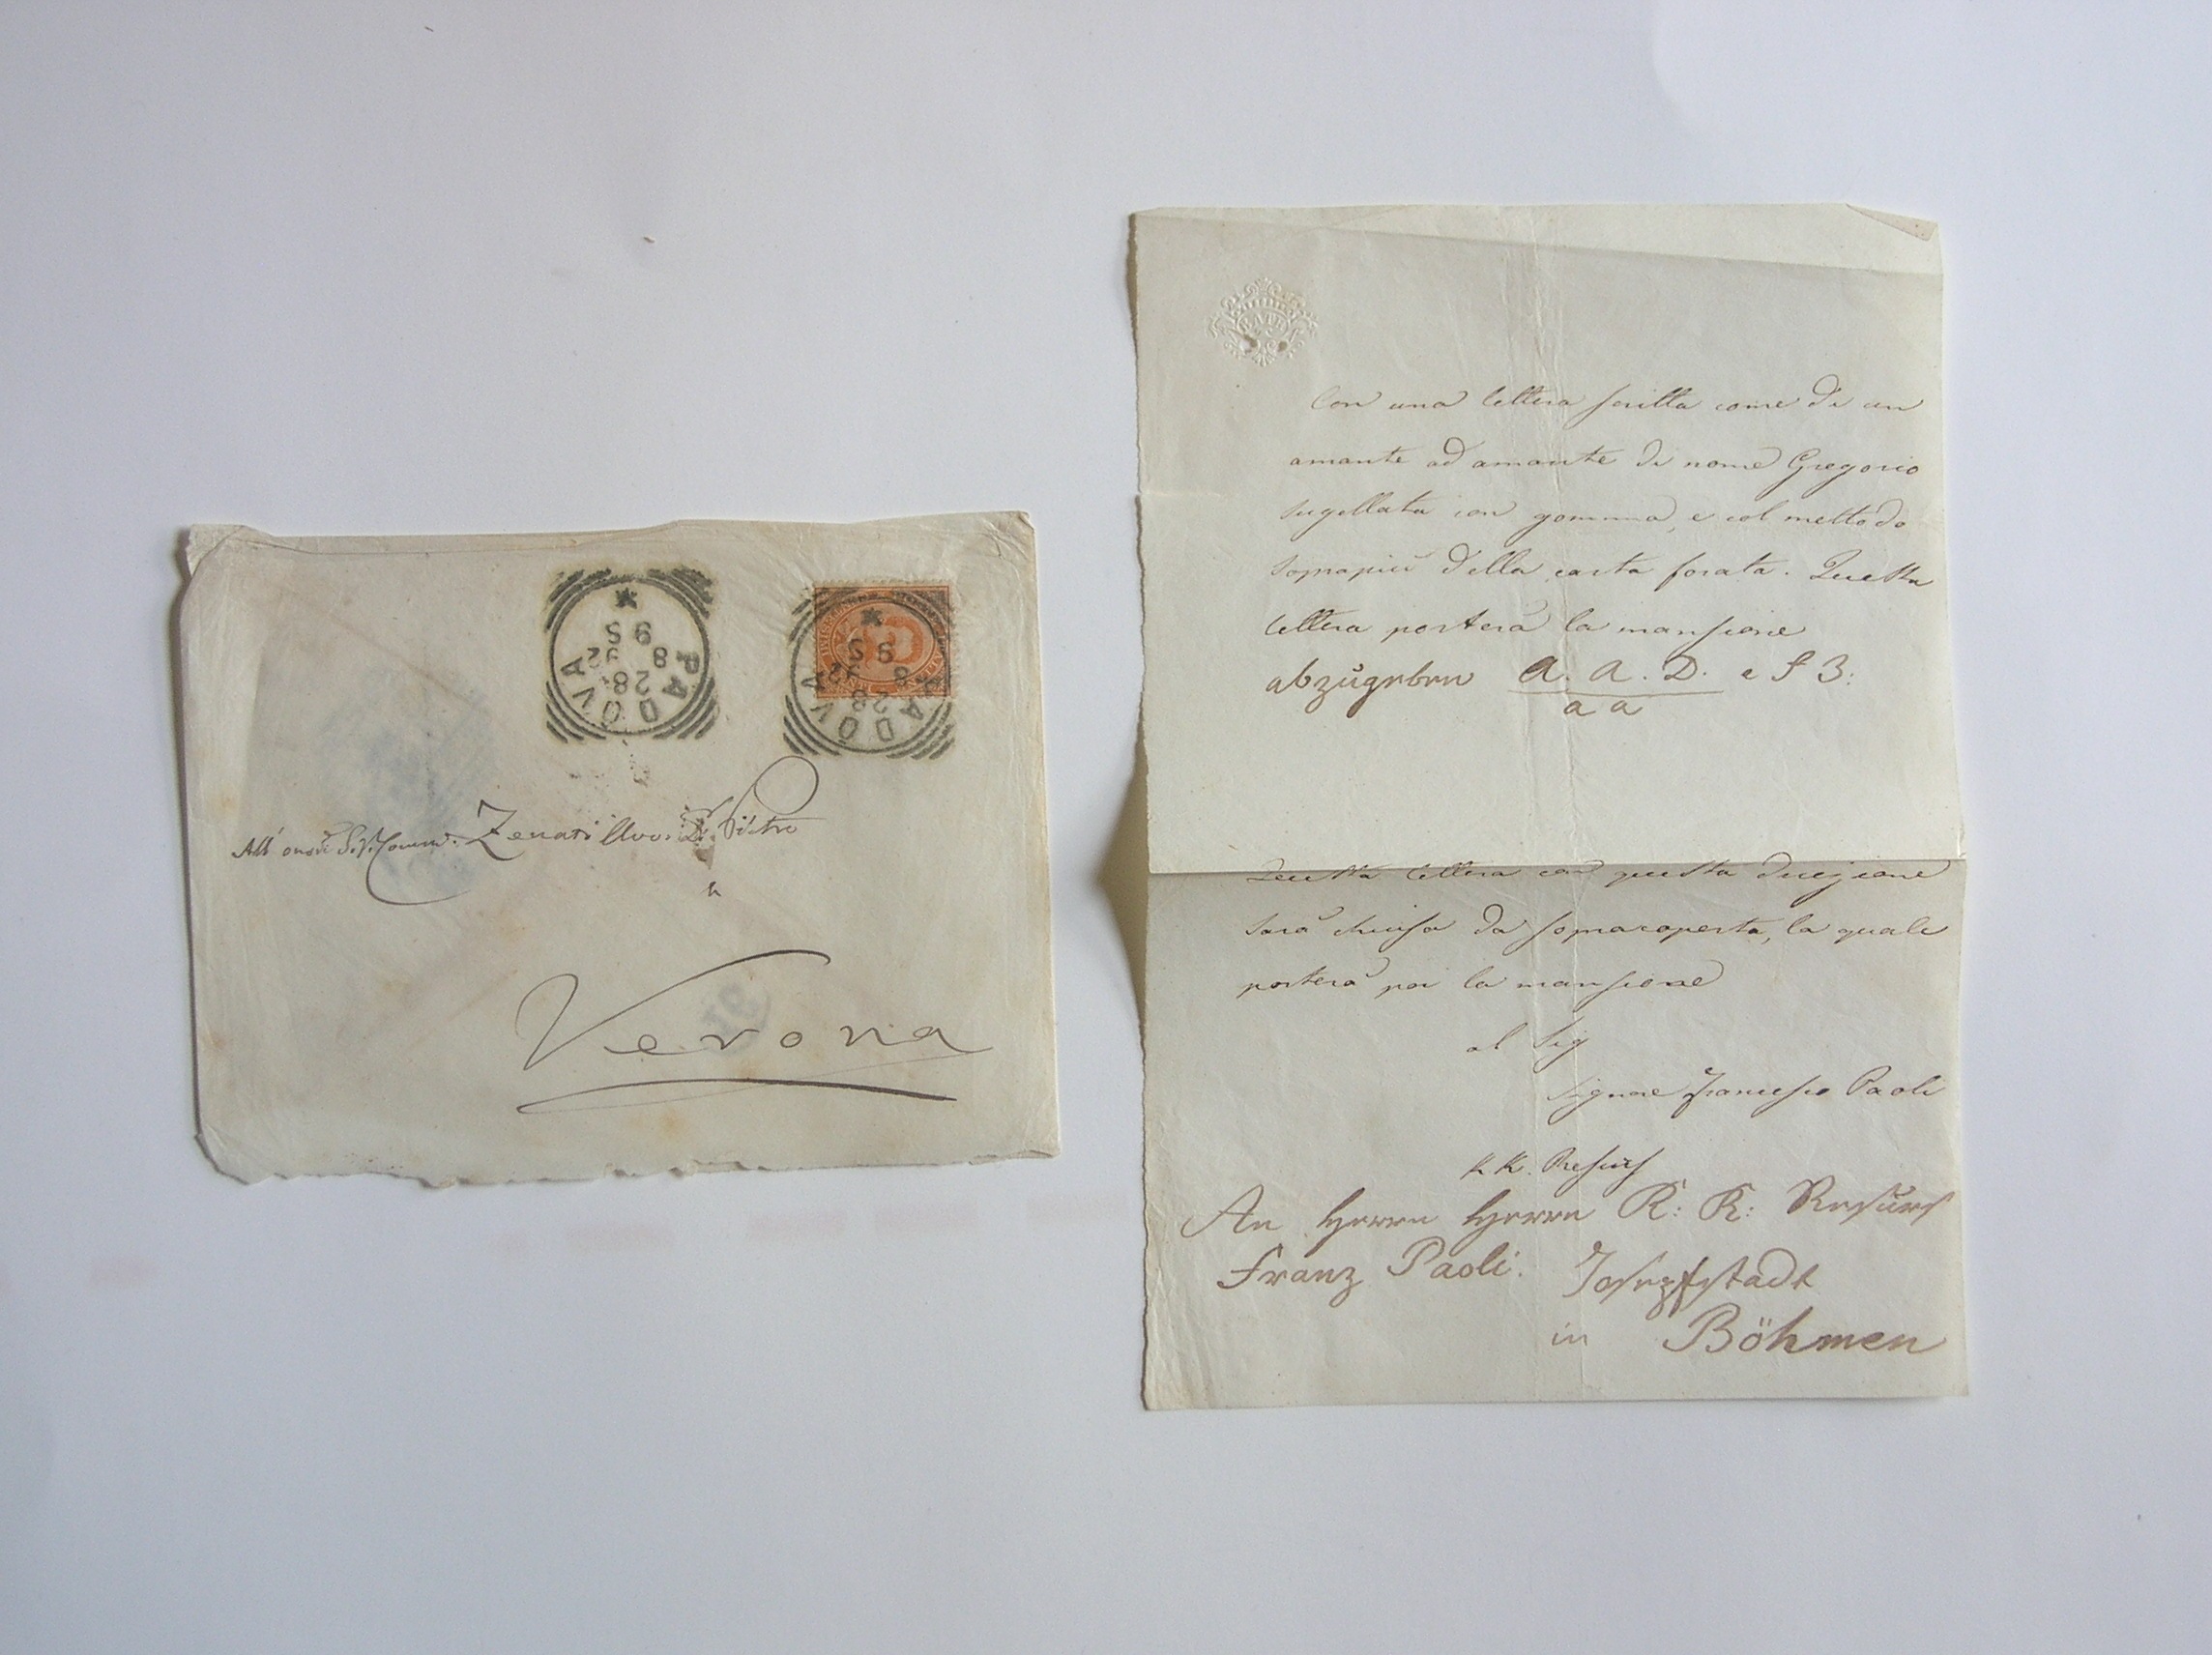 PADOVA
28
8 92
9 S
PADOVA
28
8 92
9 S
All' Comm. Zenati Avv. Dr. Pietro
a
Verona
BATH
Con una lettera scritta come di un
amante ad amante di nome Gregorio
sugellata con gomma, e col mettodo
sopra più della carta forata. Questa
lettera porterà la mansione
abzugeben A. A. D. e S 3:
a a
Questa lettera con questa direzione
sarà chiusa da sopracoperta, la quale
porterà poi la mansione
al Sig
Signore Francesco Paoli
K K. Resurs
An Herrn Herrn K: K: Resurs
Franz Paoli. Josephstadt
in Böhmen